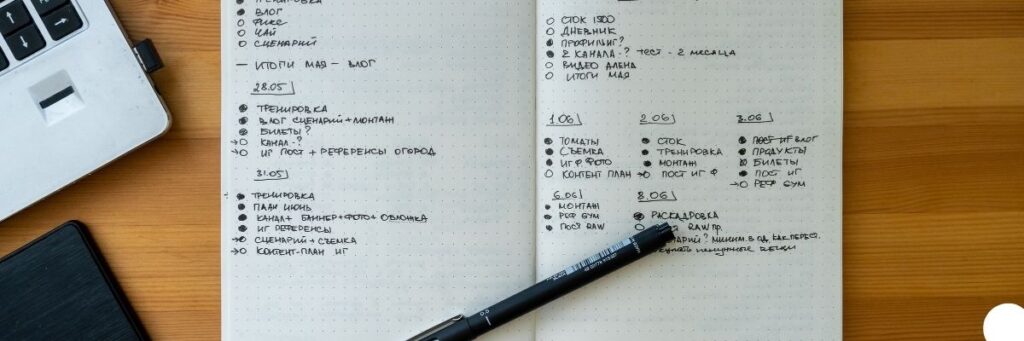 ТРЕНИРОВКА
ВЛОГ
ФИКС
ЧАЙ
СЦЕНАРИЙ
— ИТОГИ МАЯ — ВЛОГ
28.05
ТРЕНИРОВКА
ВЛОГ СЦЕНАРИЙ + МОНТАЖ
БИЛЕТЫ?
КАНАЛ -?
ИГ ПОСТ + РЕФЕРЕНСЫ ОГОРОД
31.05
ТРЕНИРОВКА
ПЛАН ИЮНЬ
КАНАЛ + БАННЕР + ФОТО + ОБЛОЖКА
ИГ РЕФЕРЕНСЫ
СЦЕНАРИЙ + СЪЕМКА
КОНТЕНТ-ПЛАН ИГ
СТОК 1500
ДНЕВНИК
ПРОФИЛЬ ИГ?
2 КАНАЛА -? ТЕСТ - 2 МЕСЯЦА
ВИДЕО АЛЕНА
ИТОГИ МАЯ
1.06
ТОМАТЫ
СЪЕМКА
ИГ Ф ФОТО
КОНТЕНТ ПЛАН
2.06
СТОК
ТРЕНИРОВКА
МОНТАЖ
ПОСТ ИГ Ф
3.06
ПОСТ ИГ ВЛОГ
ПРОДУКТЫ
БИЛЕТЫ
ПОСТ ИГ
РЕФ GYM
6.06
МОНТАЖ
РЕФ GYM
ПОСТ RAW
8.06
РАСКАДРОВКА
RAW ПР.
? МИНИМ. В ОД, КАК ПЕРЕСТ.
ненужные вещи